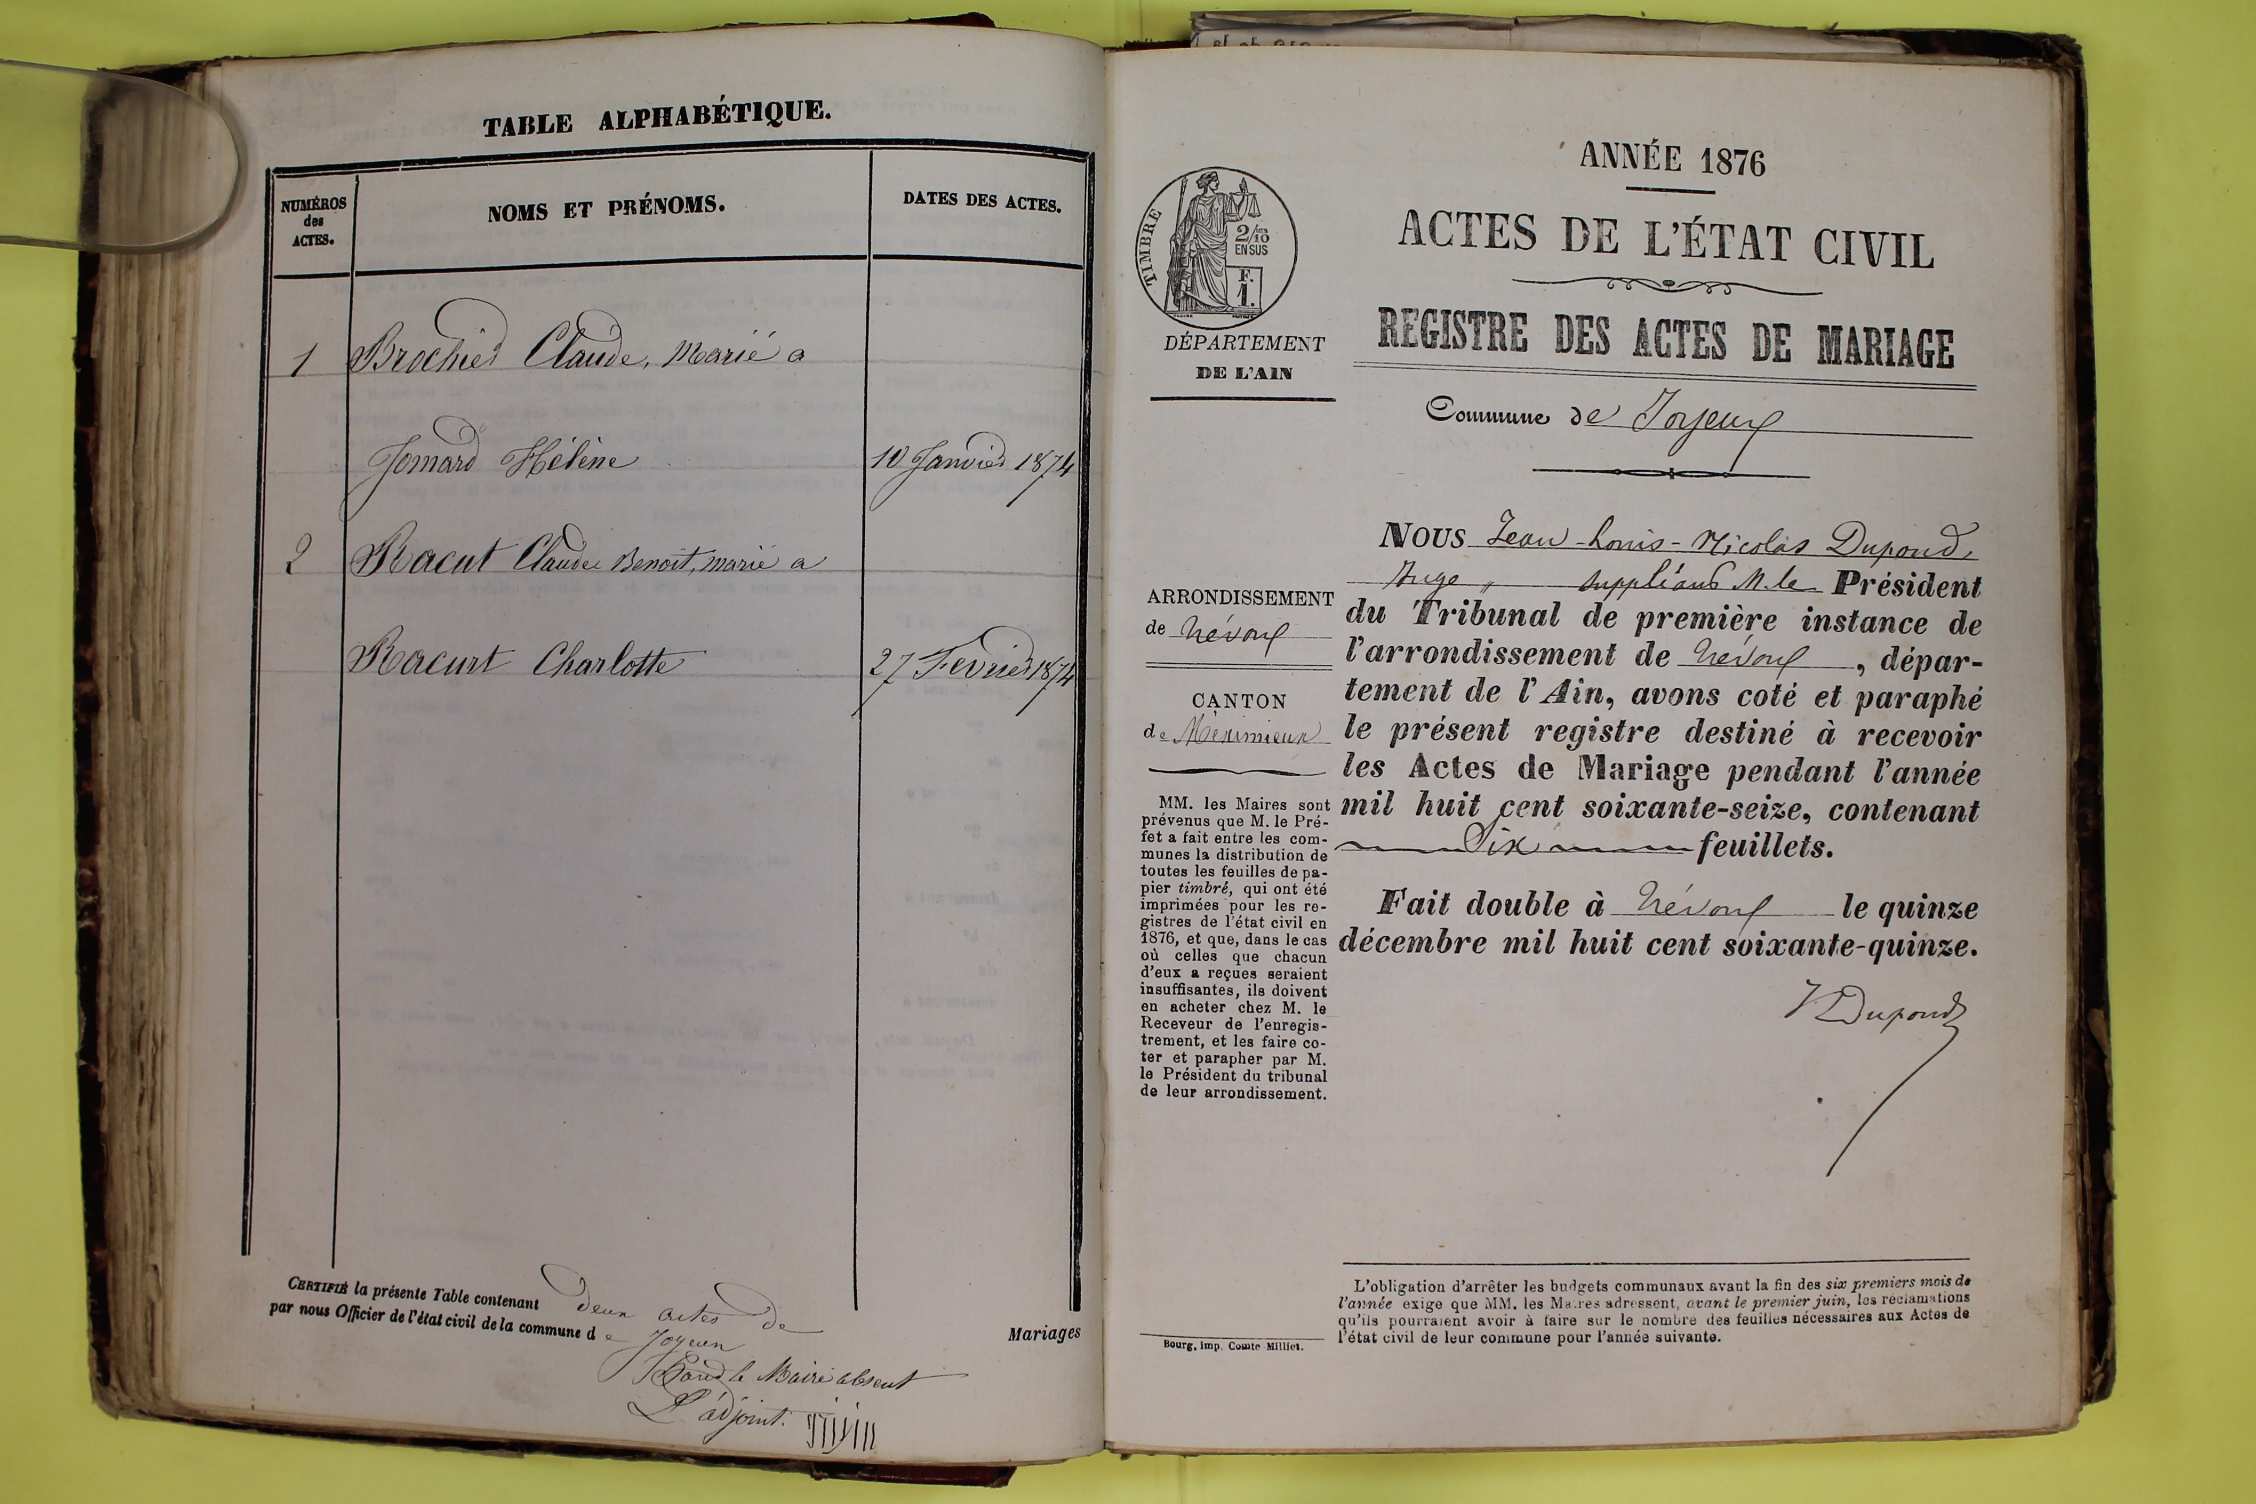 TABLE ALPHABÉTIQUE.
NUMÉROS
des
ACTES.
NOMS ET PRÉNOMS.
DATES DES ACTES.
1 Brochier Claude, Marié a
Jomard Hélène 10 Janvier 1874
2 Racut Claude Benoit, marié a
Racurt Charlotte 27 Fevrier 1874
CERTIFIÉ la présente Table contenant deux actes de
Mariages
par nous Officier de l'état civil de la commune de Joyeux
Pour le Maire absent
L'adjoint.
ANNÉE 1876
ACTES DE L'ÉTAT CIVIL
REGISTRE DES ACTES DE MARIAGE
TIMBRE
2/10
EN SUS
F.
1.
DÉPARTEMENT
DE L'AIN
Commune de Joyeux
ARRONDISSEMENT
de Trévoux
CANTON
de Méximieux
MM. les Maires sont
prévenus que M. le Pré-
fet a fait entre les com-
munes la distribution de
toutes les feuilles de pa-
pier timbré, qui ont été
imprimées pour les re-
gistres de l'état civil en
1876, et que, dans le cas
où celles que chacun
d'eux a reçues seraient
insuffisantes, ils doivent
en acheter chez M. le
Receveur de l'enregis-
trement, et les faire co-
ter et parapher par M.
le Président du tribunal
de leur arrondissement.
Bourg, imp. Comte-Milliet.
NOUS Jean-Louis-Nicolas Dupond,
Juge suppléant M. le Président
du Tribunal de première instance de
l'arrondissement de Trévoux, dépar-
tement de l'Ain, avons coté et paraphé
le présent registre destiné à recevoir
les Actes de Mariage pendant l'année
mil huit cent soixante-seize, contenant
Six feuillets.
Fait double à Trévoux le quinze
décembre mil huit cent soixante-quinze.
Dupond
L'obligation d'arrêter les budgets communaux avant la fin des six premiers mois de
l'année exige que MM. les Maires adressent, avant le premier juin, les réclamations
qu'ils pourraient avoir à faire sur le nombre des feuilles nécessaires aux Actes de
l'état civil de leur commune pour l'année suivante.